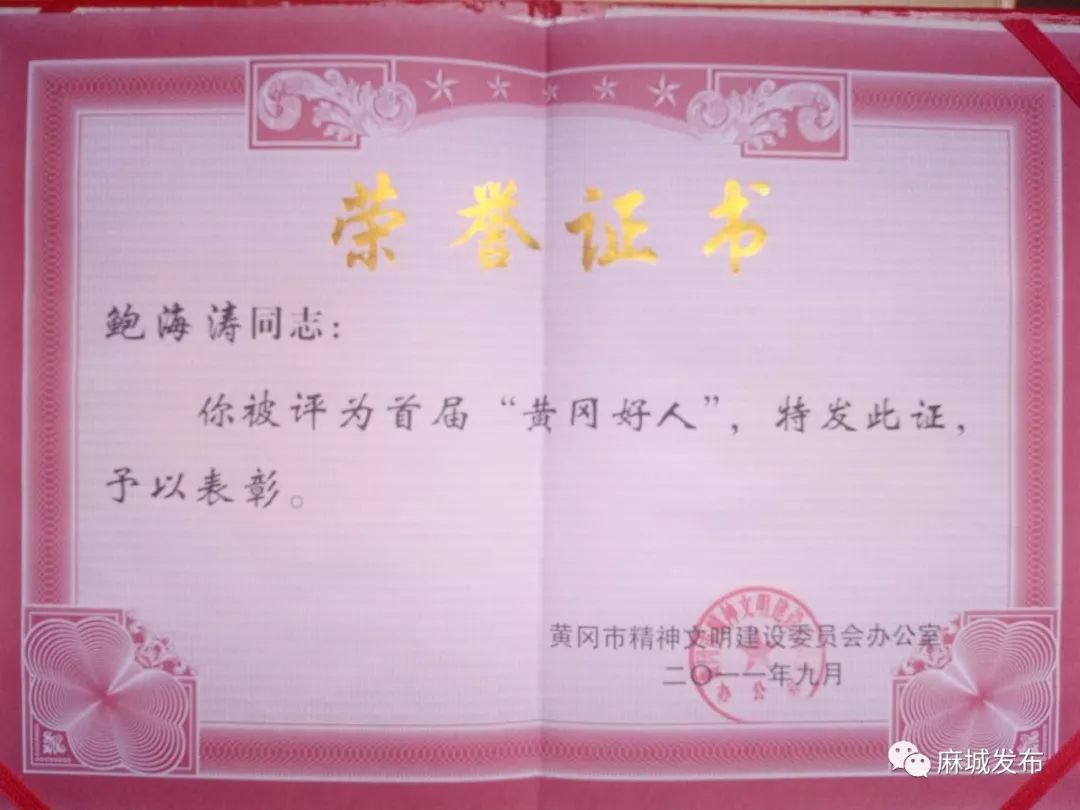 荣誉证书
鲍海涛同志：
你被评为首届“黄冈好人”，特发此证，
予以表彰。
黄冈市精神文明建设委员会办公室
二〇一一年九月
麻城发布